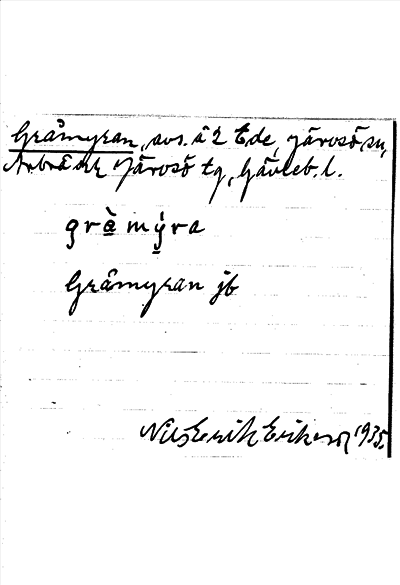 Gråmyran, sos. å 2 Ede, Järvsö sn,
Arbrå och Järvsö tg, Gävleb. l.
gràmýra
Gråmyran jb
Nils Erik Erikson 1935.